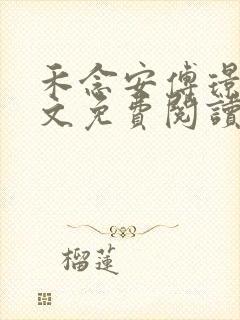 禾念安傅璟
文免費閱讀
榴蓮